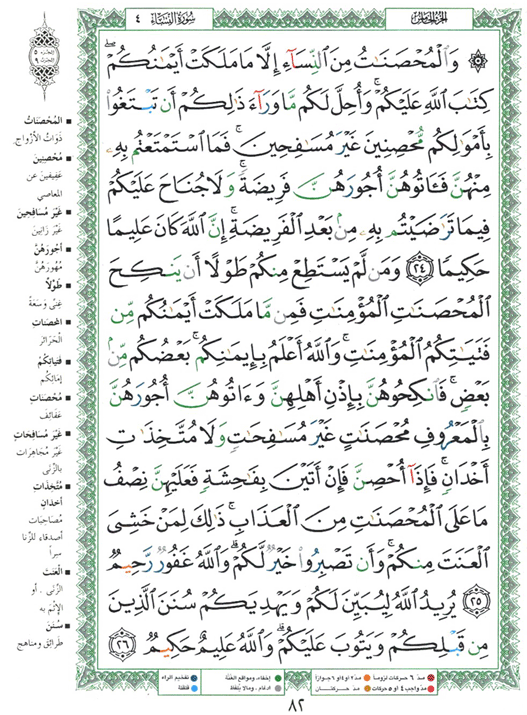 سورة النساء ٤
الجزء الخامس
۞ وَٱلْمُحْصَنَٰتُ مِنَ ٱلنِّسَآءِ إِلَّا مَا مَلَكَتْ أَيْمَٰنُكُمْ ۖ
كِتَٰبَ ٱللَّهِ عَلَيْكُمْ ۚ وَأُحِلَّ لَكُم مَّا وَرَآءَ ذَٰلِكُمْ أَن تَبْتَغُوا۟
بِأَمْوَٰلِكُم مُّحْصِنِينَ غَيْرَ مُسَٰفِحِينَ ۚ فَمَا ٱسْتَمْتَعْتُم بِهِۦ
مِنْهُنَّ فَـَٔاتُوهُنَّ أُجُورَهُنَّ فَرِيضَةً ۚ وَلَا جُنَاحَ عَلَيْكُمْ
فِيمَا تَرَٰضَيْتُم بِهِۦ مِنۢ بَعْدِ ٱلْفَرِيضَةِ ۚ إِنَّ ٱللَّهَ كَانَ عَلِيمًا
حَكِيمًا ٢٤ وَمَن لَّمْ يَسْتَطِعْ مِنكُمْ طَوْلًا أَن يَنكِحَ
ٱلْمُحْصَنَٰتِ ٱلْمُؤْمِنَٰتِ فَمِن مَّا مَلَكَتْ أَيْمَٰنُكُم مِّن
فَتَيَٰتِكُمُ ٱلْمُؤْمِنَٰتِ ۚ وَٱللَّهُ أَعْلَمُ بِإِيمَٰنِكُم ۚ بَعْضُكُم مِّنۢ
بَعْضٍ ۚ فَٱنكِحُوهُنَّ بِإِذْنِ أَهْلِهِنَّ وَءَاتُوهُنَّ أُجُورَهُنَّ
بِٱلْمَعْرُوفِ مُحْصَنَٰتٍ غَيْرَ مُسَٰفِحَٰتٍ وَلَا مُتَّخِذَٰتِ
أَخْدَانٍ ۚ فَإِذَآ أُحْصِنَّ فَإِنْ أَتَيْنَ بِفَٰحِشَةٍ فَعَلَيْهِنَّ نِصْفُ
مَا عَلَى ٱلْمُحْصَنَٰتِ مِنَ ٱلْعَذَابِ ۚ ذَٰلِكَ لِمَنْ خَشِىَ
ٱلْعَنَتَ مِنكُمْ ۚ وَأَن تَصْبِرُوا۟ خَيْرٌ لَّكُمْ ۗ وَٱللَّهُ غَفُورٌ رَّحِيمٌ
٢٥ يُرِيدُ ٱللَّهُ لِيُبَيِّنَ لَكُمْ وَيَهْدِيَكُمْ سُنَنَ ٱلَّذِينَ
مِن قَبْلِكُمْ وَيَتُوبَ عَلَيْكُمْ ۗ وَٱللَّهُ عَلِيمٌ حَكِيمٌ ٢٦
■ المُحْصَنَاتُ
ذَوَاتُ الأَزْوَاجِ.
■ مُحْصِنِينَ
عَفِيفِينَ عَن
المعاصي
■ غَيْرَ مُسَافِحِينَ
غَيْرَ زَانِينَ
■ أُجُورَهُنَّ
مُهُورَهُنَّ
■ طَوْلاً
غِنًى وَسَعَةً
■ المُحْصَنَاتِ
الحَرَائِرَ
■ فَتَيَاتِكُمُ
إِمَائِكُم
■ مُحْصَنَاتٍ
عَفَائِفَ
■ غَيْرَ مُسَافِحَاتٍ
غَيْرَ مُجَاهِرَاتٍ
بِالزِّنَى
■ مُتَّخِذَاتِ
أَخْدَانٍ
مُصَاحِبَاتِ
أَصْدِقَاءَ لِلزِّنَا
سِرًّا
■ العَنَتَ
الزِّنَى . أو
الإِثْمَ به
■ سُنَنَ
طَرَائِقَ ومناهج
مدّ ٦ حركات لزوماً
مدّ ٢ أو ٤ أو ٦ جوازاً
مدّ واجب ٤ أو ٥ حركات
مدّ حركتان
إخفاء، ومواقع الغنّة
ادغام، وما لا يُلفظ
تفخيم الراء
قلقلة
٨٢